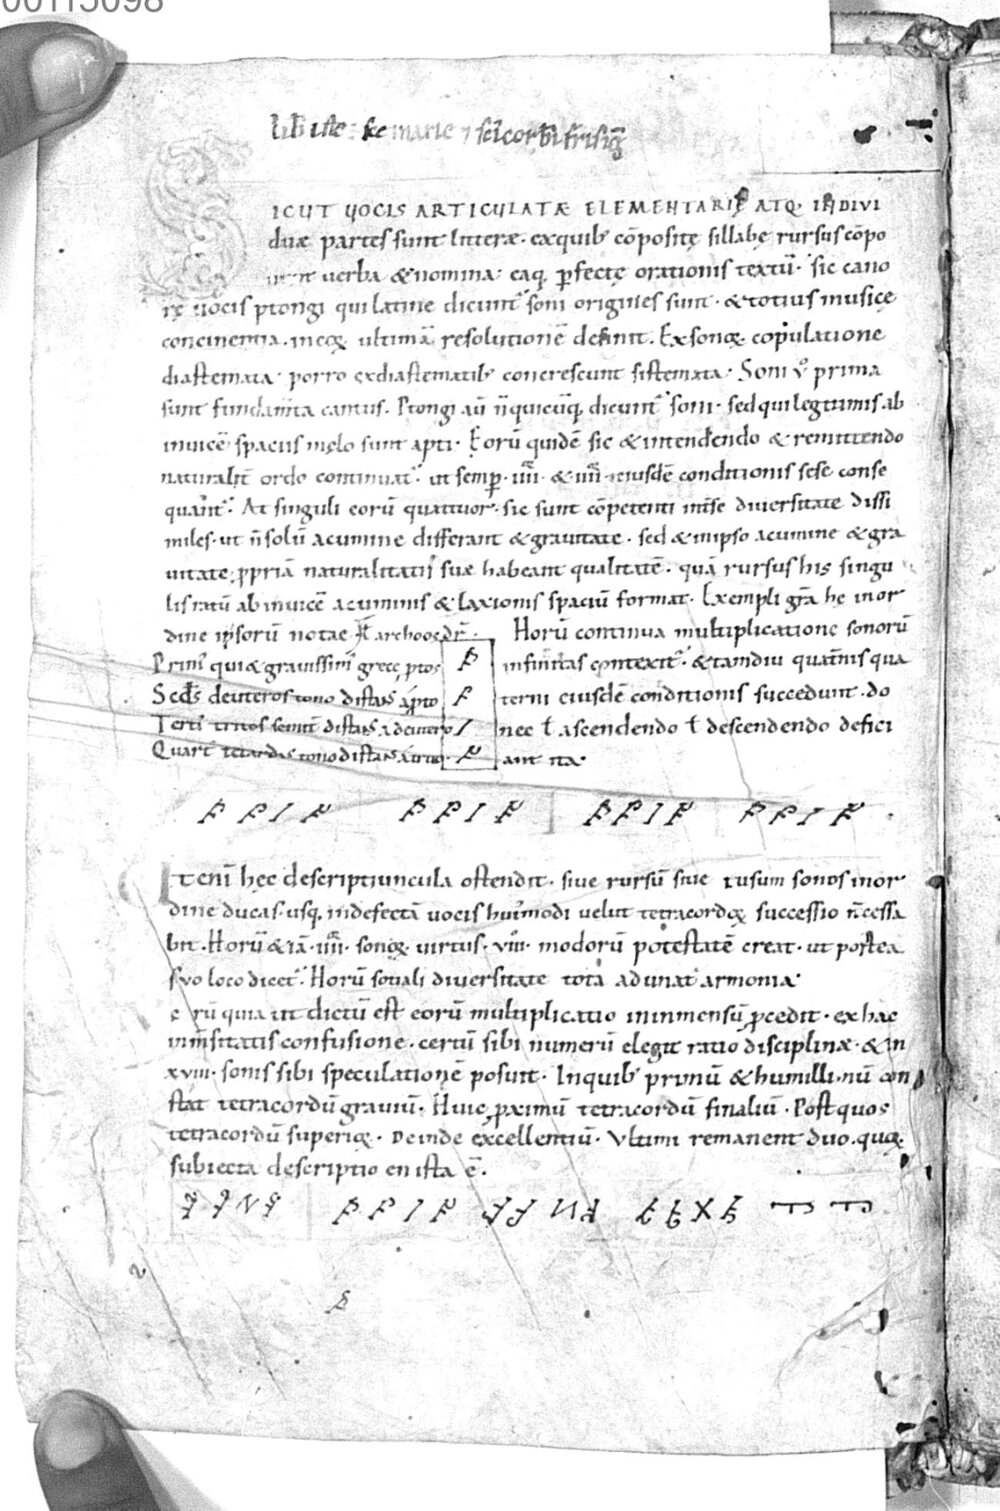 00115098
Lib iste sce marie ⁊ sci corbi frisig
SICUT VOCIS ARTICULATÆ ELEMENTARIÆ ATQ. INDIVI
duæ partes sunt litteræ. exquib; cōpositę sillabę rursus cōpo
nunt uerba & nomina. eaq; ꝑfectę orationis textū. sic cano
rę uocis ptongi qui latine dicunt̃ soni origines sunt. & totius musicę
concinentia. ineoꝝ ultimā resolutionē definit. Ex sonoꝝ copulatione
diastemata. porro exdiastematib; concrescunt sistemata. Soni v̊ prima
sunt fundam̃ta cantus. Ptongi aū n̄ quicūq; dicunt̃ soni. sed qui legitimis ab
inuicē spaciis melo sunt apti. Eorū quidē sic & intendendo & remittendo
naturalit̃ ordo continuat̃. ut semp̱. iiii. & iiii. eiusdē conditionis sese conse
quant̃. At singuli eorū quattuor. sic sunt cōpetenti int̃ se diuersitate dissi
miles. ut n̄ solū acumine differant & grauitate. sed & inipso acumine & gra
uitate ꝓpriā naturalitatis suæ habeant qualitatē. quā rursus his singu
lis ratū abinuicē acuminis & laxionis spaciū format. Exempli gr̃a he inor
dine ipsorū notae archoos dr̃. Horū continua multiplicatione sonorū
Primꝰ qui & grauissimꝰ grece ptos infinitas contexit̃. & tamdiu quat̃nis qua
Scds deuteros tono distans a pto terni eiusdē conditionis succedunt. do
Tertꝰ tritos semit̃ distans a deutero nec ł ascendendo ł descendendo defici
Quartꝰ tetardos tono distans a trito ant ita.
Iteni hec descriptiuncula ostendit. siue rursū siue iusum sonos inor
dine ducas. usq; indefectā uocis huꝰmodi uelut tetracordoꝝ successio n̄ cessa
bit. Horū & iā. iiii. sonoꝝ uirtus. viii. modorū potestatē creat. ut postea
suo loco dicet̃. Horū sotiali diuersitate tota adunat̃ armonia.
e rū quia ut dictū est eorū multiplicatio ininmensū ꝓcedit. ex hac
inm̃sitatis confusione. certū sibi numerū elegit ratio disciplinæ. & in
xviii. sonis sibi speculationē posuit. Inquib; primū & humillimū con
stat tetracordū grauiū. Huic ꝓximū tetracordū finaliū. Post quos
tetracordū superioꝝ. Deinde excellentiū. Ultimi remanent duo. quoꝝ
subiecta descriptio en ista ē.